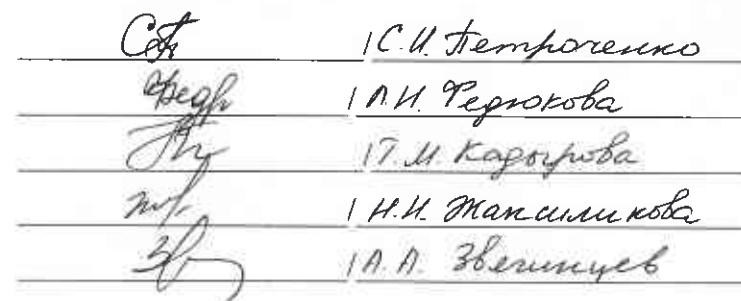 / С.И. Петроченко
/ Л.И. Федюкова
/ Т.М. Кадырова
/ Н.И. Жансиликова
/ А.А. Звегинцев